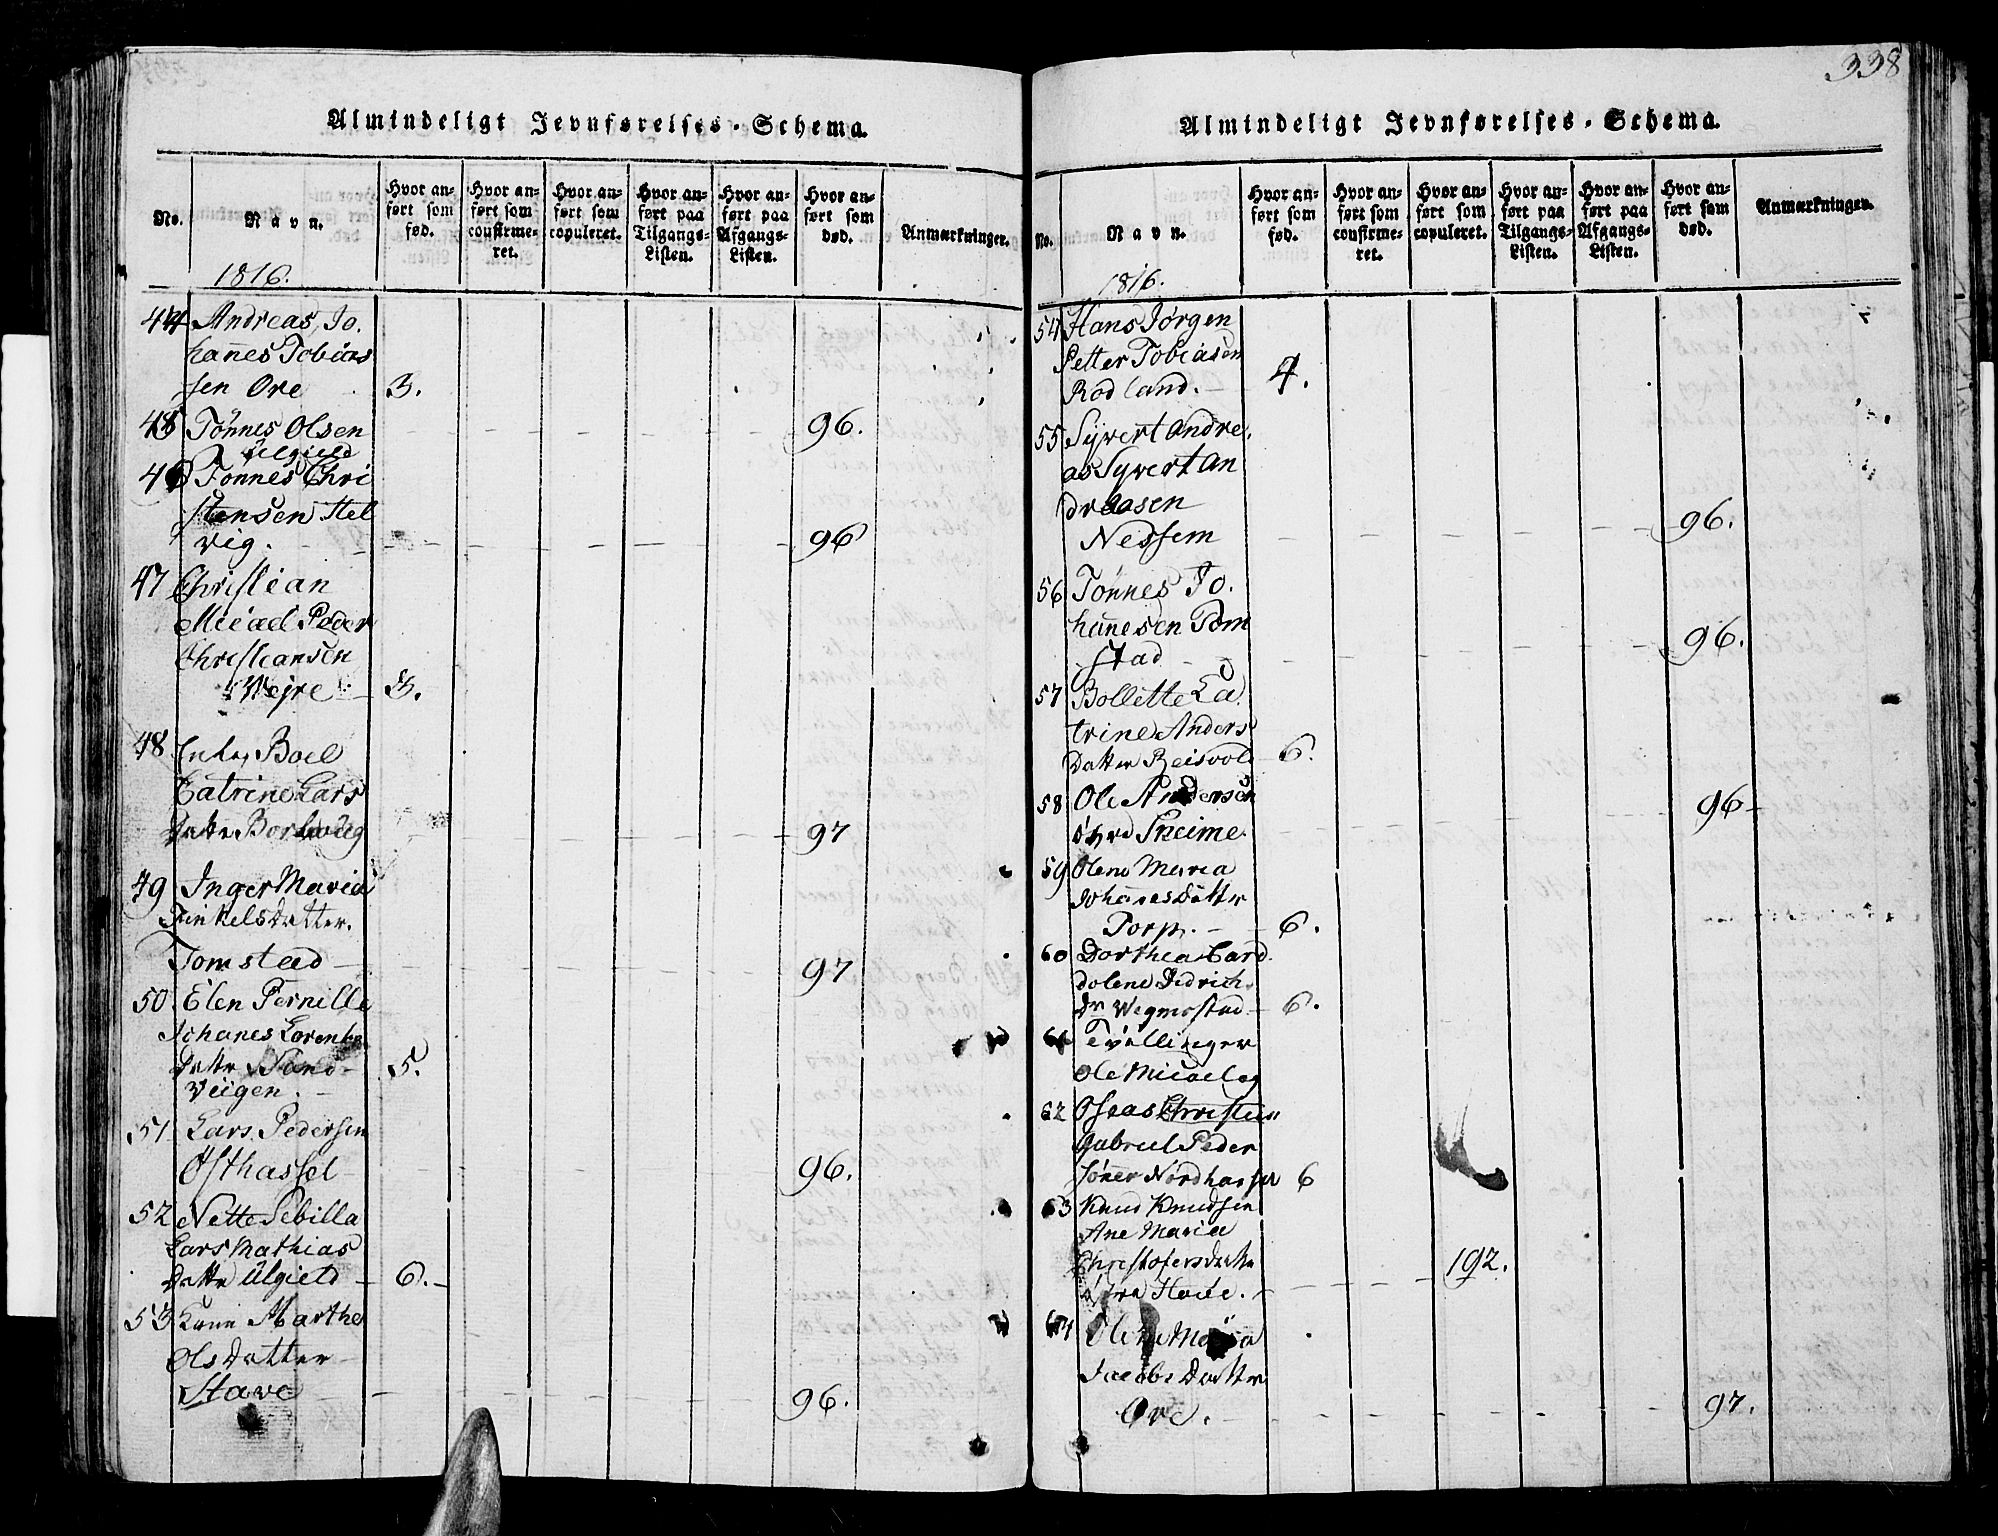 338
Almindeligt Jevnførelses-Schema.
No.
Navn.
Hvor an-
ført som
fød.
Hvor an-
ført som
confirme-
ret.
Hvor an-
ført som
copuleret.
Hvor an-
ført paa
Tilgangs-
Listen.
Hvor an-
ført paa
Afgangs-
Listen.
Hvor an-
ført som
død.
Anmærkninger.
1816.
44 Andreas, Jo.
hanes Tobias
sen Ore 3.
45 Tönnes Olsen 96.
Ulgield
46 Tönnes Chri
stensen Hel
vig. 96
47 Christian
Micael Peder
Christiansen
Wejre 3.
48 Enke, Boel
Catrine Lars
Datter 97
49 Inger Maria
Datter.
Tomstad 97
50 Elen Pernille
Johanes Lorents
Datter Sand-
viigen. 5.
51 Lars Pedersen
Osthassel 96.
52 Nette Sebilla
Lars Mathias
Datter Ulgield 6.
53 Marthe
Ols Datter
Stave 96.
Almindeligt Jevnførelses-Schema.
No.
Navn.
Hvor an-
ført som
fød.
Hvor an-
ført som
confirme-
ret.
Hvor an-
ført som
copuleret.
Hvor an-
ført paa
Tilgangs-
Listen.
Hvor an-
ført paa
Afgangs-
Listen.
Hvor an-
ført som
død.
Anmærkninger.
1816.
54 Hans Jørgen
Petter Tobiasen
Rodland. 4.
55 Syvert Andre.
as Syvert An
dreasen
Nessem 96.
56 Tönnes Jo.
hanesen Tom
stad 96.
57 Bollette Ca
trine Anders
Datter Reisvold 6.
58 Ole Andersen 96
Sneime
59 Olene Maria
Johanes Datter
Torp. 6.
60 Dorthea Card
dolene Didrich
Dr Wegmostad 6.
61 Tvillinger
Ole Micael og
62 Oseas Christian
Gabriel Peder
sönner Nordhassel 6
63 Knud Knudsen
Ane Maria
Christofersdatter 192.
Haue.
64 Olene
Jacobs Datter
Ore. 97.